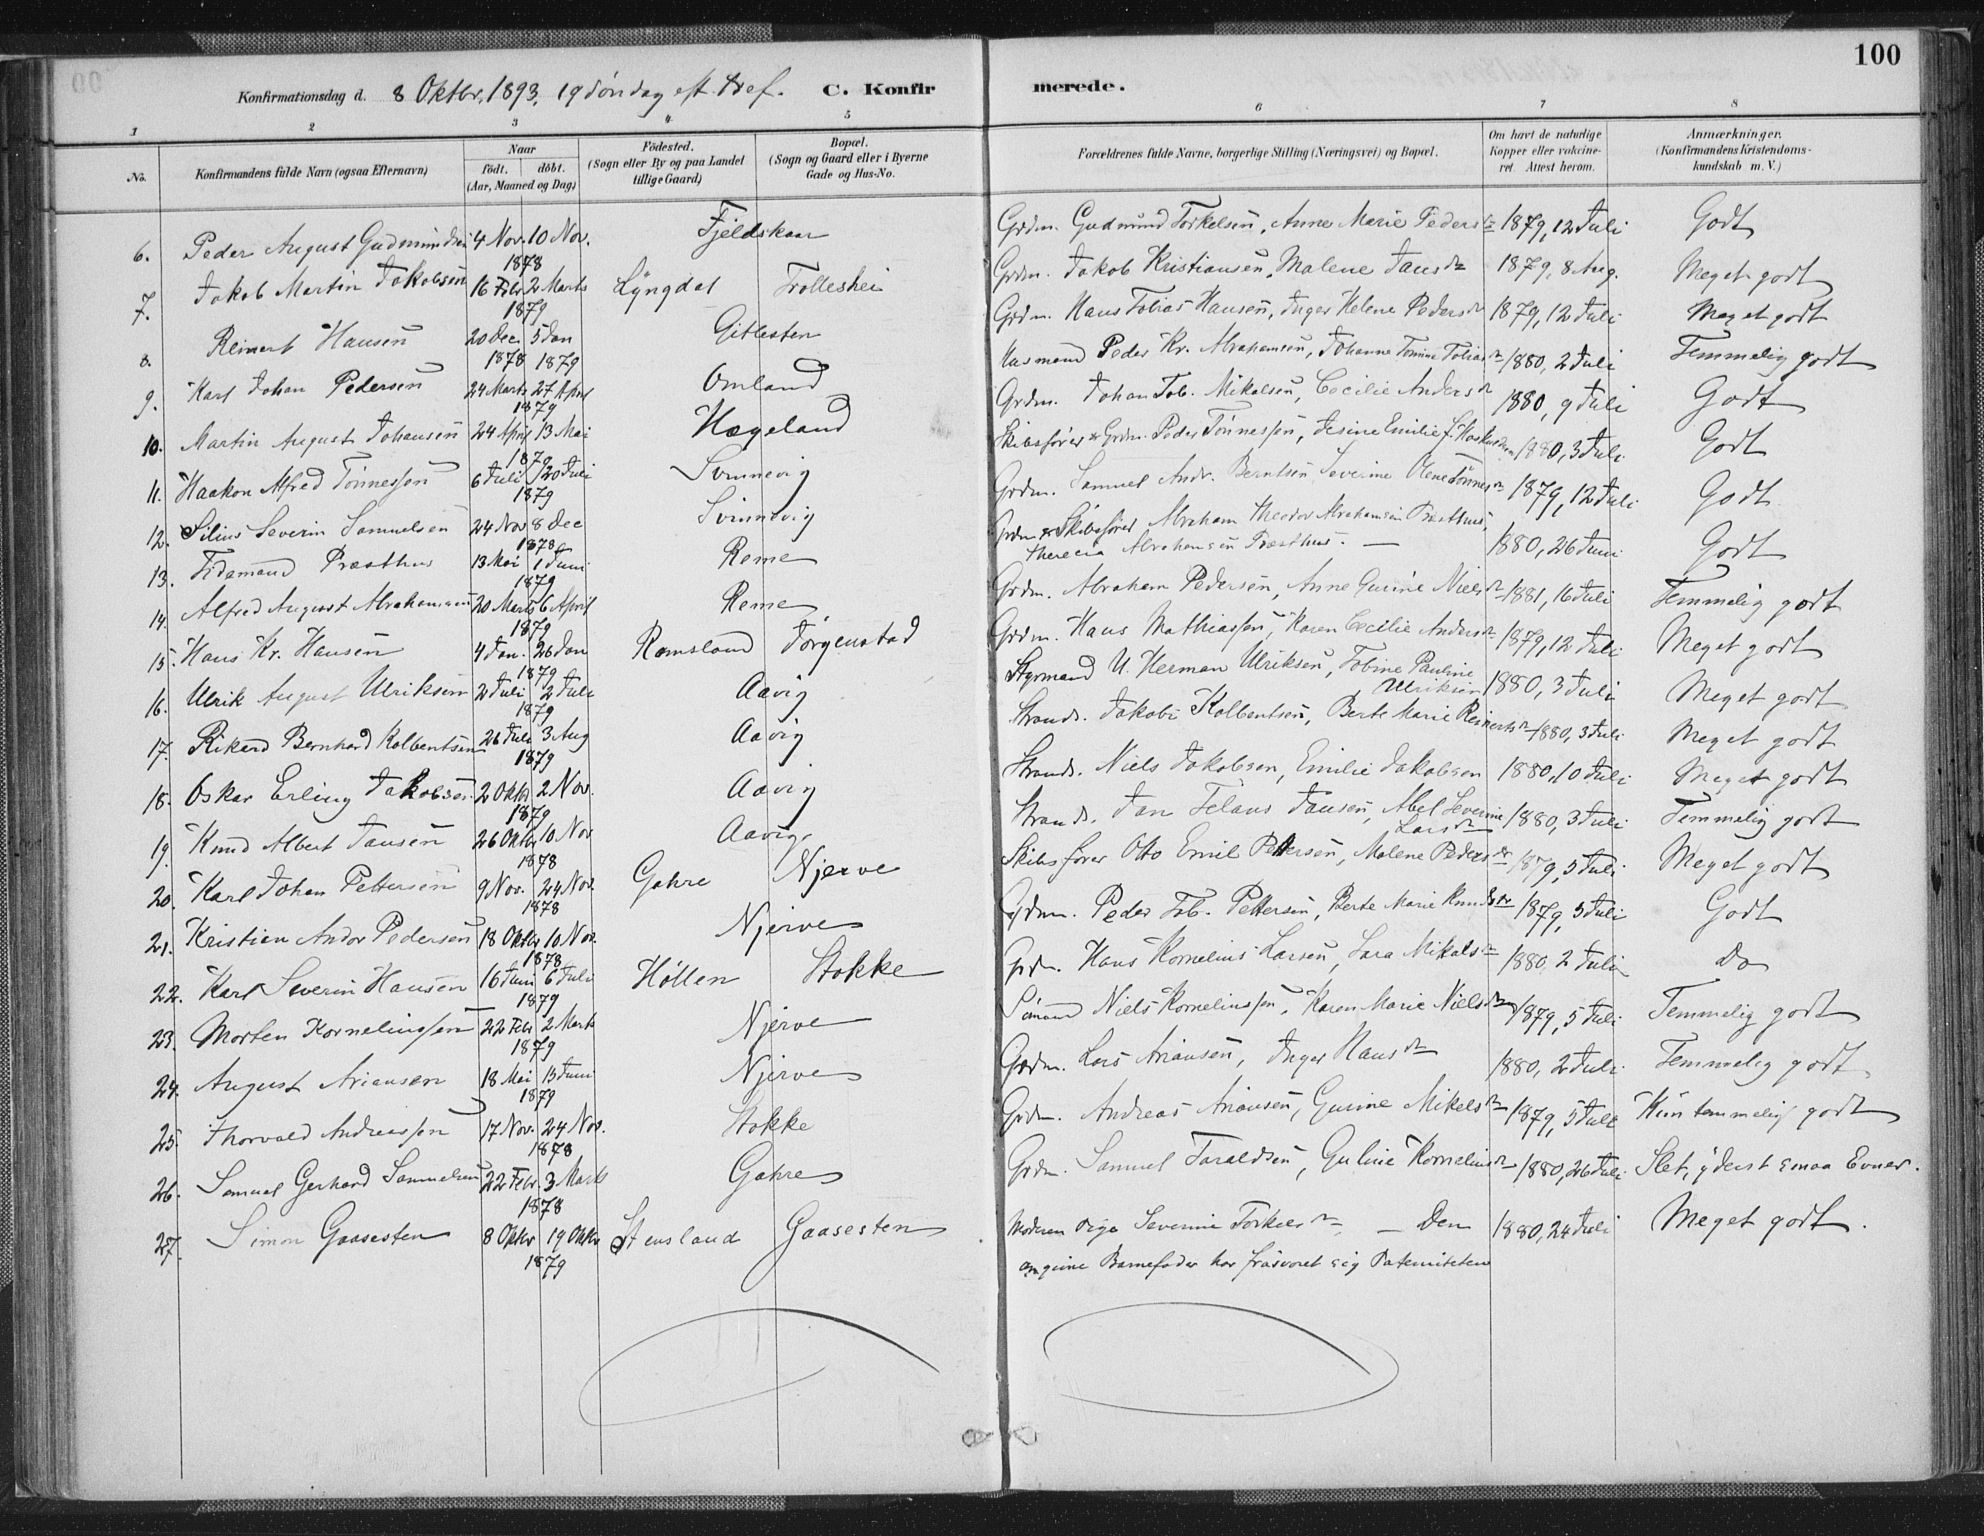 100
Konfirmationsdag d. 8 Oktbr. 1893, 19 Söndag eft. Tref. C. Konfirmerede.
1 2 3 4 5 6 7 8
No. Konfirmandens fulde Navn (ogsaa Efternavn) Naar födt. döbt. (Aar, Maaned og Dag) Födested. (Sogn eller By og paa Landet tillige Gaard) Bopæl. (Sogn og Gaard eller i Byerne Gade og Hus-No. Forældrenes fulde Navne, borgerlige Stilling (Næringsvei) og Bopæl. Om havt de naturlige Kopper eller vakcineret. Attest herom. Anmærkninger. (Konfirmandens Kristendomskundskab m. V.)
6. Peder August Gudmundsen 4 Nov. 10 Nov. 1878 Fjeldskaar Grdm. Gudmund Torkelsen, Anne Marie Pedersdr 1879, 12 Juli Godt
7. Jakob Martin Jakobsen 16 Febr 2 Marts 1879 Lyngdal Trolleshei Grdm. Jakob Kristiansen, Malene Jansdr 1879, 8 Aug. Meget godt
8. Reinert Hansen 20 Dec. 5 Jan 1878 1879 Gitlesten Grdm. Hans Tobias Hansen, Inger Helene Pedersdr 1879, 12 Juli Meget godt
9. Karl Johan Pedersen 24 Marts 27 April 1879 Omland Husmand Peder Kr. Abrahamsen, Johanne Tomine Tobiasdr 1880, 2 Juli Temmelig godt
10. Martin August Johansen 24 April 13 Mai 1879 Hægeland Grdm. Johan Tob. Mikalsen, Cecilie Andersdr 1880, 9 Juli Godt
11. Haakon Alfred Tönnessen 6 Juli 20 Juli 1879 Svinnevig Skibsförer & Grdm. Peder Tönnessen, Jesine Emilie f. 1880, 3 Juli Godt
12. Silius Severin Samuelsen 24 Nov 8 Dec 1878 Svinnevig Grdm. Samuel Andr. Berntsen, Severine Olene Tönnesdr 1879, 12 Juli Godt
13. Fidemand Præsthus 13 Mai 1 Juni 1879 Reme Grdm & Skibsförer Abraham Theodor Abrahamsen Præsthus,
Therecia Abrahamsen Præsthus. — 1880, 26 Juni Godt
14. Alfred August Abrahamsen 20 Marts 6 April 1879 Reme Grdm. Abraham Pedersen, Anne Gurine Nielsdr 1881, 16 Juli Temmelig godt
15. Hans Kr. Hansen 4 Jan. 26 Jan 1879 Ramsland Jörgenstad Grdm. Hans Mathiassen, Karen Cecilie Andersdr 1879, 12 Juli Meget godt
16. Ulrik August Ulriksen 2 Juli 2 Juli 1879 Aavig Styrmand U. Herman Ulriksen, Tobine Pauline
Ulriksen 1880, 3 Juli Meget godt
17. Rikard Bernhard Kolbentsen 26 Juli 3 Aug 1879 Aavig Strands. Jakob Kolbentsen, Berte Marie Reinertsdr 1880, 3 Juli Meget godt
18. Oskar Erling Jakobsen 2 Oktbr 2 Nov. 1879 Aavig Strands. Niels Jakobsen, Emilie Jakobsen 1880, 10 Juli Meget godt
19. Knud Albert Jansen 26 Oktbr 10 Nov 1878 Aavig Strands. Jan Jansen, Abel Severine
Larsdr 1880, 3 Juli Temmelig godt
20. Karl Johan Pettersen 9 Nov. 24 Nov. 1878 Gahre Njerve Skibsförer Otto Emil Pettersen, Malene Pedersdr 1879, 5 Juli Meget godt
21. Kristian Andor Pedersen 18 Oktbr 10 Nov. 1878 Njerve Grdm. Peder Tob. Pettersen, Berte Marie Knudsdr 1879, 5 Juli Godt
22. Karl Severin Hansen 16 Juni 6 Juli 1879 Höllen Stokke Grdm. Hans Kornelius Larsen, Sara Mikalsdr 1880, 2 Juli Do
23. Morten Korneliussen 22 Febr 2 Marts 1879 Njerve Sömand Niels Korneliussen, Karen Marie Nielsdr 1879, 5 Juli Temmelig godt
24. August Ariansen 18 Mai 15 Juni 1879 Njerve Grdm. Lars Ariansen, Inger Hansdr 1880, 2 Juli Temmelig godt
25. Thorvald Andreassen 17 Nov. 24 Nov. 1878 Stokke Grdm. Andreas Ariansen, Gurine Mikelsdr 1879, 5 Juli Kun temmelig godt
26. Samuel Gerhard Samuelsen 22 Febr. 3 Marts 1878 Gahre Grdm. Samuel Taraldsen, Guline Korneliusdr 1880, 26 Juli Slet, yderst smaa Evner.
27. Simon Gaasesten 8 Oktbr 19 Oktbr 1879 Stensland Gaasesten Moderen Pige Severine Torkelsdr — Den 1880, 24 Juli Meget godt.
angivne Barnefader har frasvoret sig Paterniteten